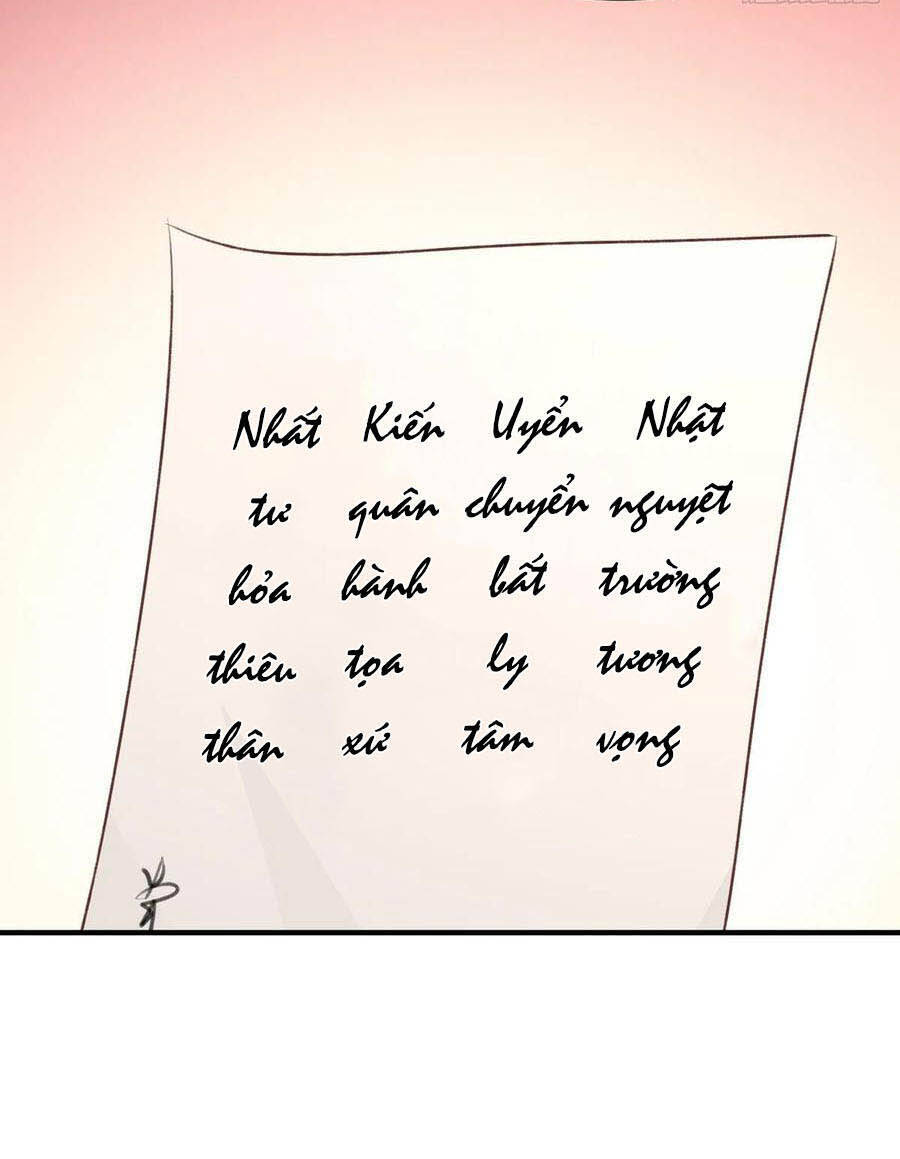 Nhất Kiến Uyển Nhật
tư quân chuyển nguyệt
hỏa hành bất trường
thiêu tọa ly tương
thân xứ tâm vọng